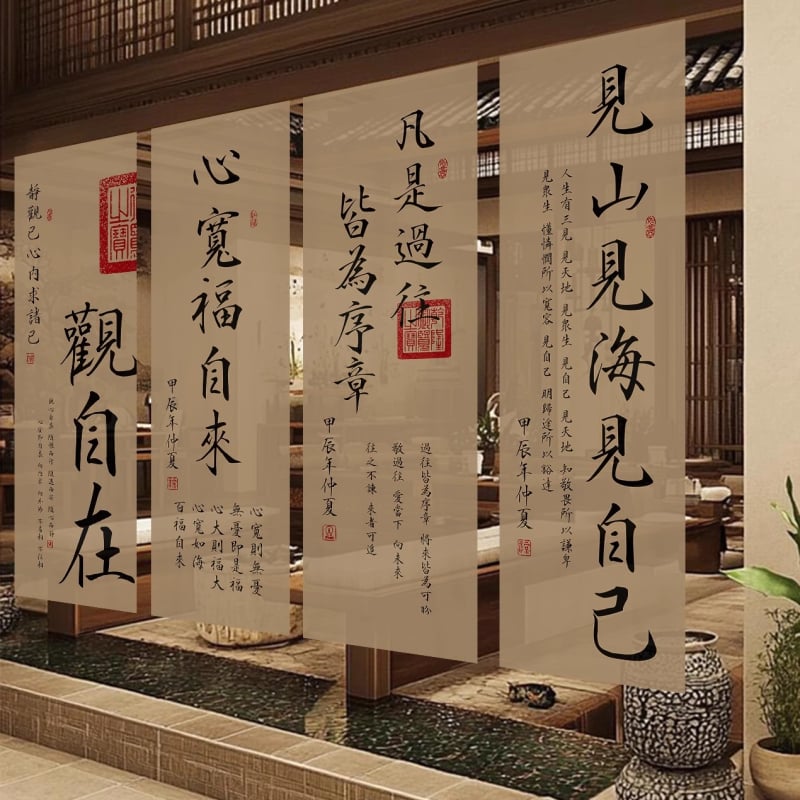 見山見海見自己
人生有三見 見天地 見衆生 見自己 見天地 知敬畏所以謙卑
見衆生 懂憐憫所以寬容 見自己 明歸途所以豁達
甲辰年仲夏
凡是過往
皆為序章
過往皆為序章 將來皆為可盼
敬過往 愛當下 向未來
往之不諫 來者可追
甲辰年仲夏
心寬福自來
甲辰年仲夏
心寬則無憂
無憂即是福
心大則福大
心寬如海
百福自來
觀自在
靜觀己心內求諸己